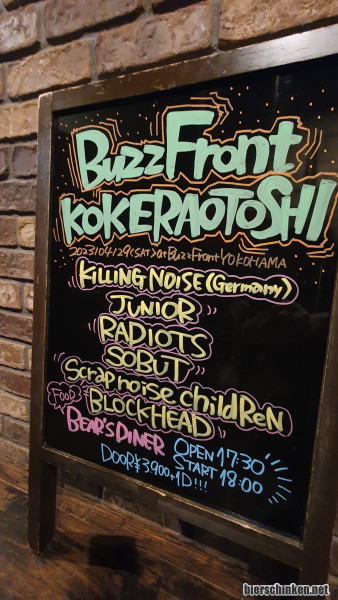 BuzzFront
KOKERAOTOSHI
2023/04/29(SAT) at BuzzFront YOKOHAMA
KILLING NOISE (Germany)
JUNIOR
RADIOTS
SOBUT
Scrap noise childReN
BLOCKHEAD
FOOD BEAR'S DINER
OPEN 17:30
START 18:00
DOOR ¥3900+1D!!!
bierschinken.net